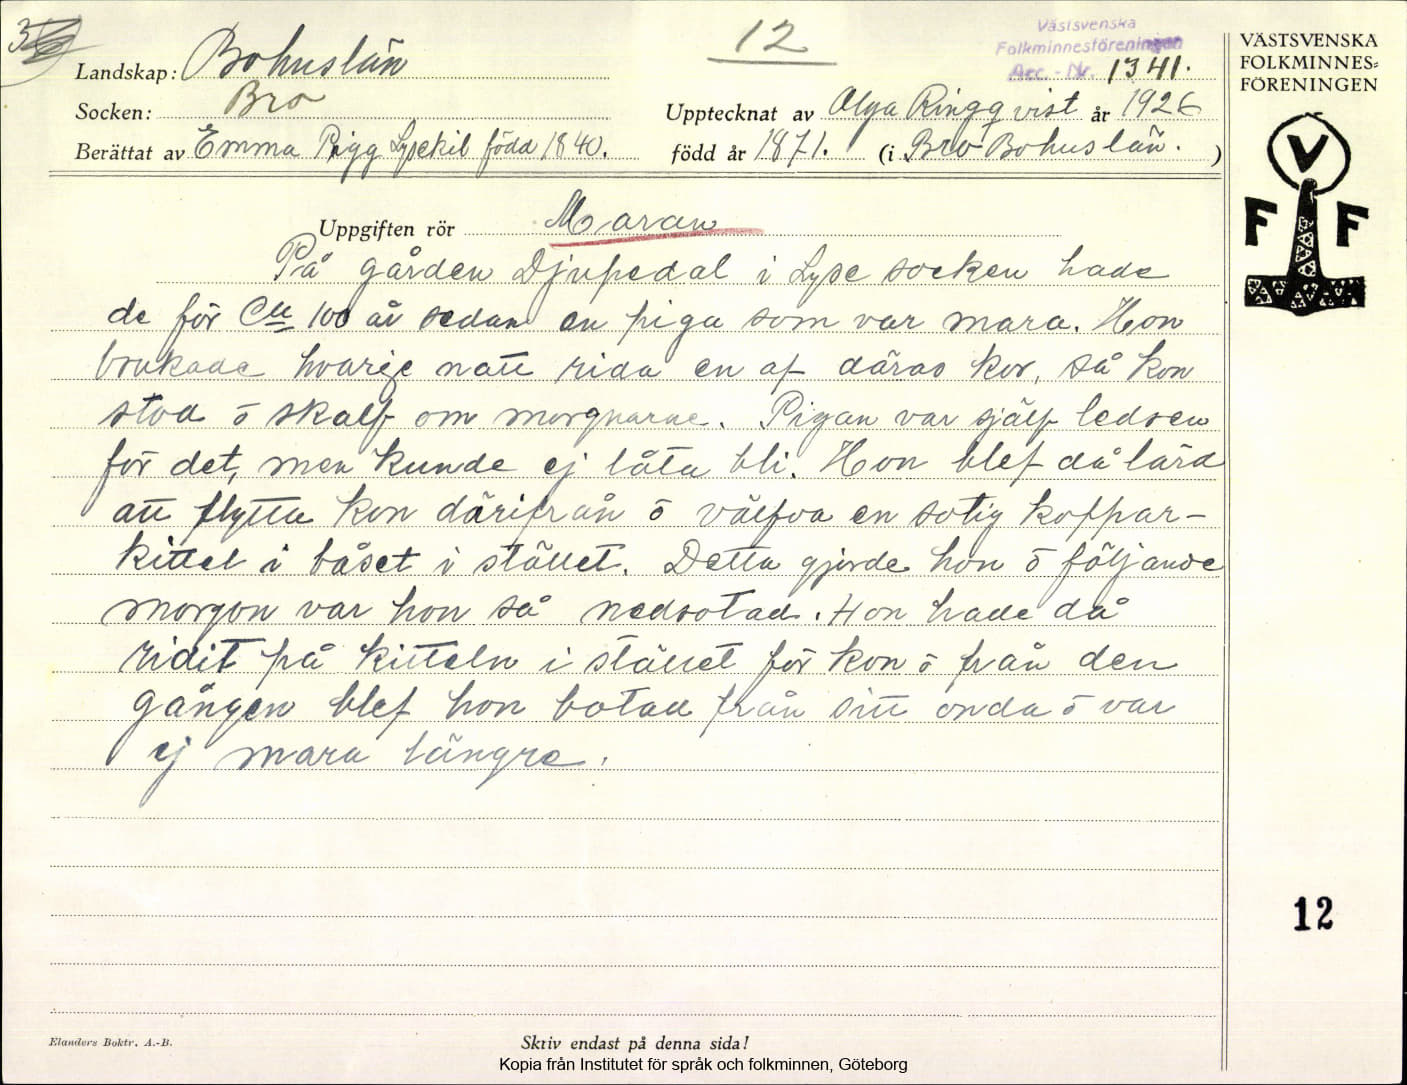 12
Västsvenska
Folkminnesföreningen
Acc.-Nr. 1341.
Landskap: Bohuslän
Socken: Bro
Upptecknat av Olga Ringqvist år 1926
Berättat av Emma Rigg Lysekil född 1840.
född år 1871. (i Bro Bohuslän.)
Uppgiften rör Maran
På gården Djupedal i Lyse socken hade
de för Ca 100 år sedan en piga som var mara. Hon
brukade hvarije natt rida en af däras kor, så kon
stod ō skalf om morgnarne. Pigan var själf ledsen
för det, men kunde ej låta bli. Hon blef då lärd
att flytta kon därifrån ō välfva en sotig koppar-
kittel i båset i stället. Detta gjorde hon ō följande
morgon var hon så nedsotad. Hon hade då
ridit på kitteln i stället för kon ō från den
gången blef hon botad från sitt onda ō var
ej mara längre.
VÄSTSVENSKA
FOLKMINNES-
FÖRENINGEN
V
F F
12
Elanders Boktr. A.-B.
Skriv endast på denna sida!
Kopia från Institutet för språk och folkminnen, Göteborg